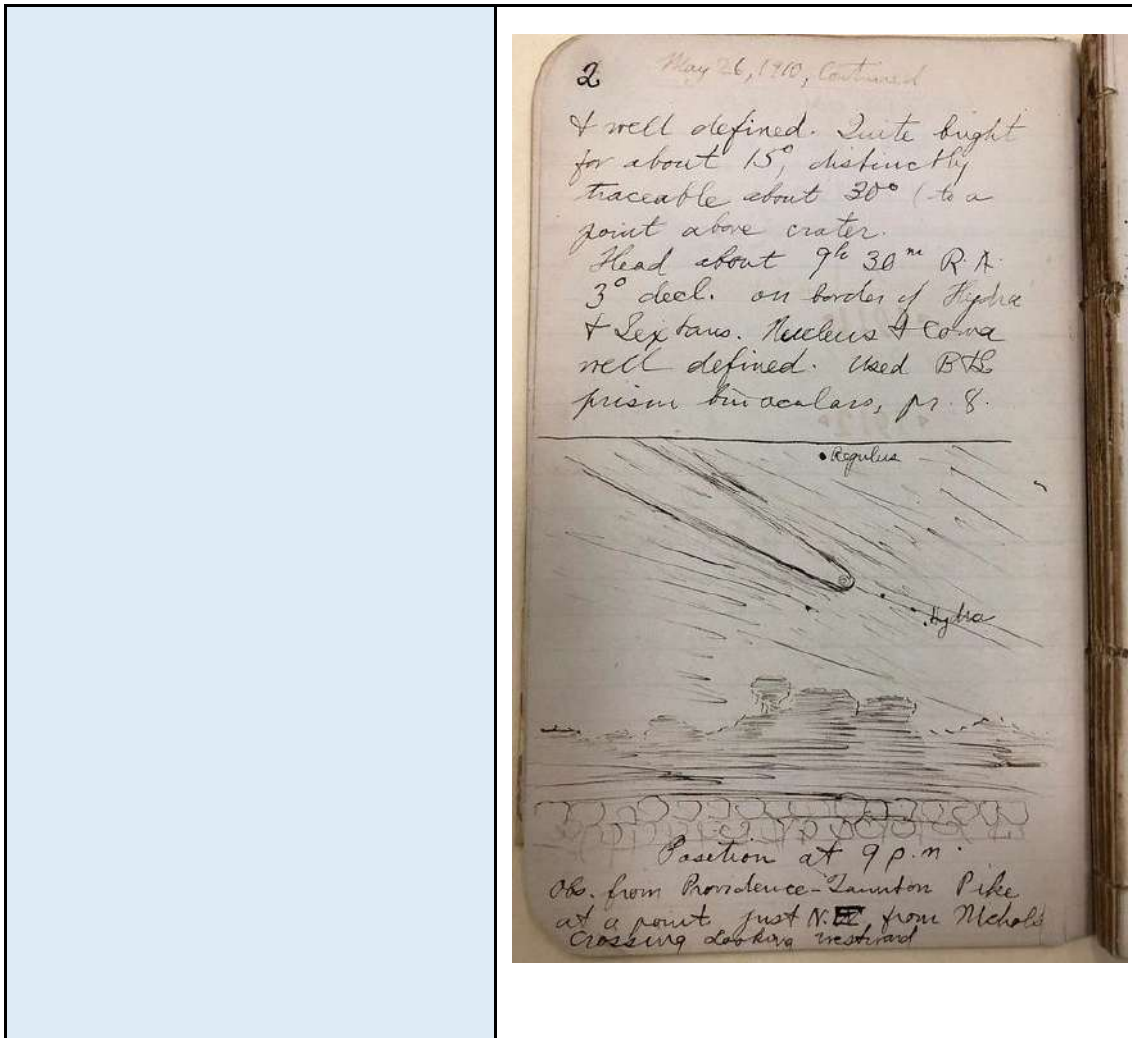 2 May 26, 1910, Continued
& well defined. Quite bright
for about 15°, distinctly
traceable about 30° (to a
point above crater.
Head about 9h 30m R.A.
3° decl. on border of Hydra
& Sextans. Nucleus & Coma
well defined. Used B&L
prism binoculars, pr. 8.
Regulus
Hydra
Position at 9 p.m.
Obs. from Providence-Taunton Pike
at a point just N. from Nichols
Crossing Looking westward